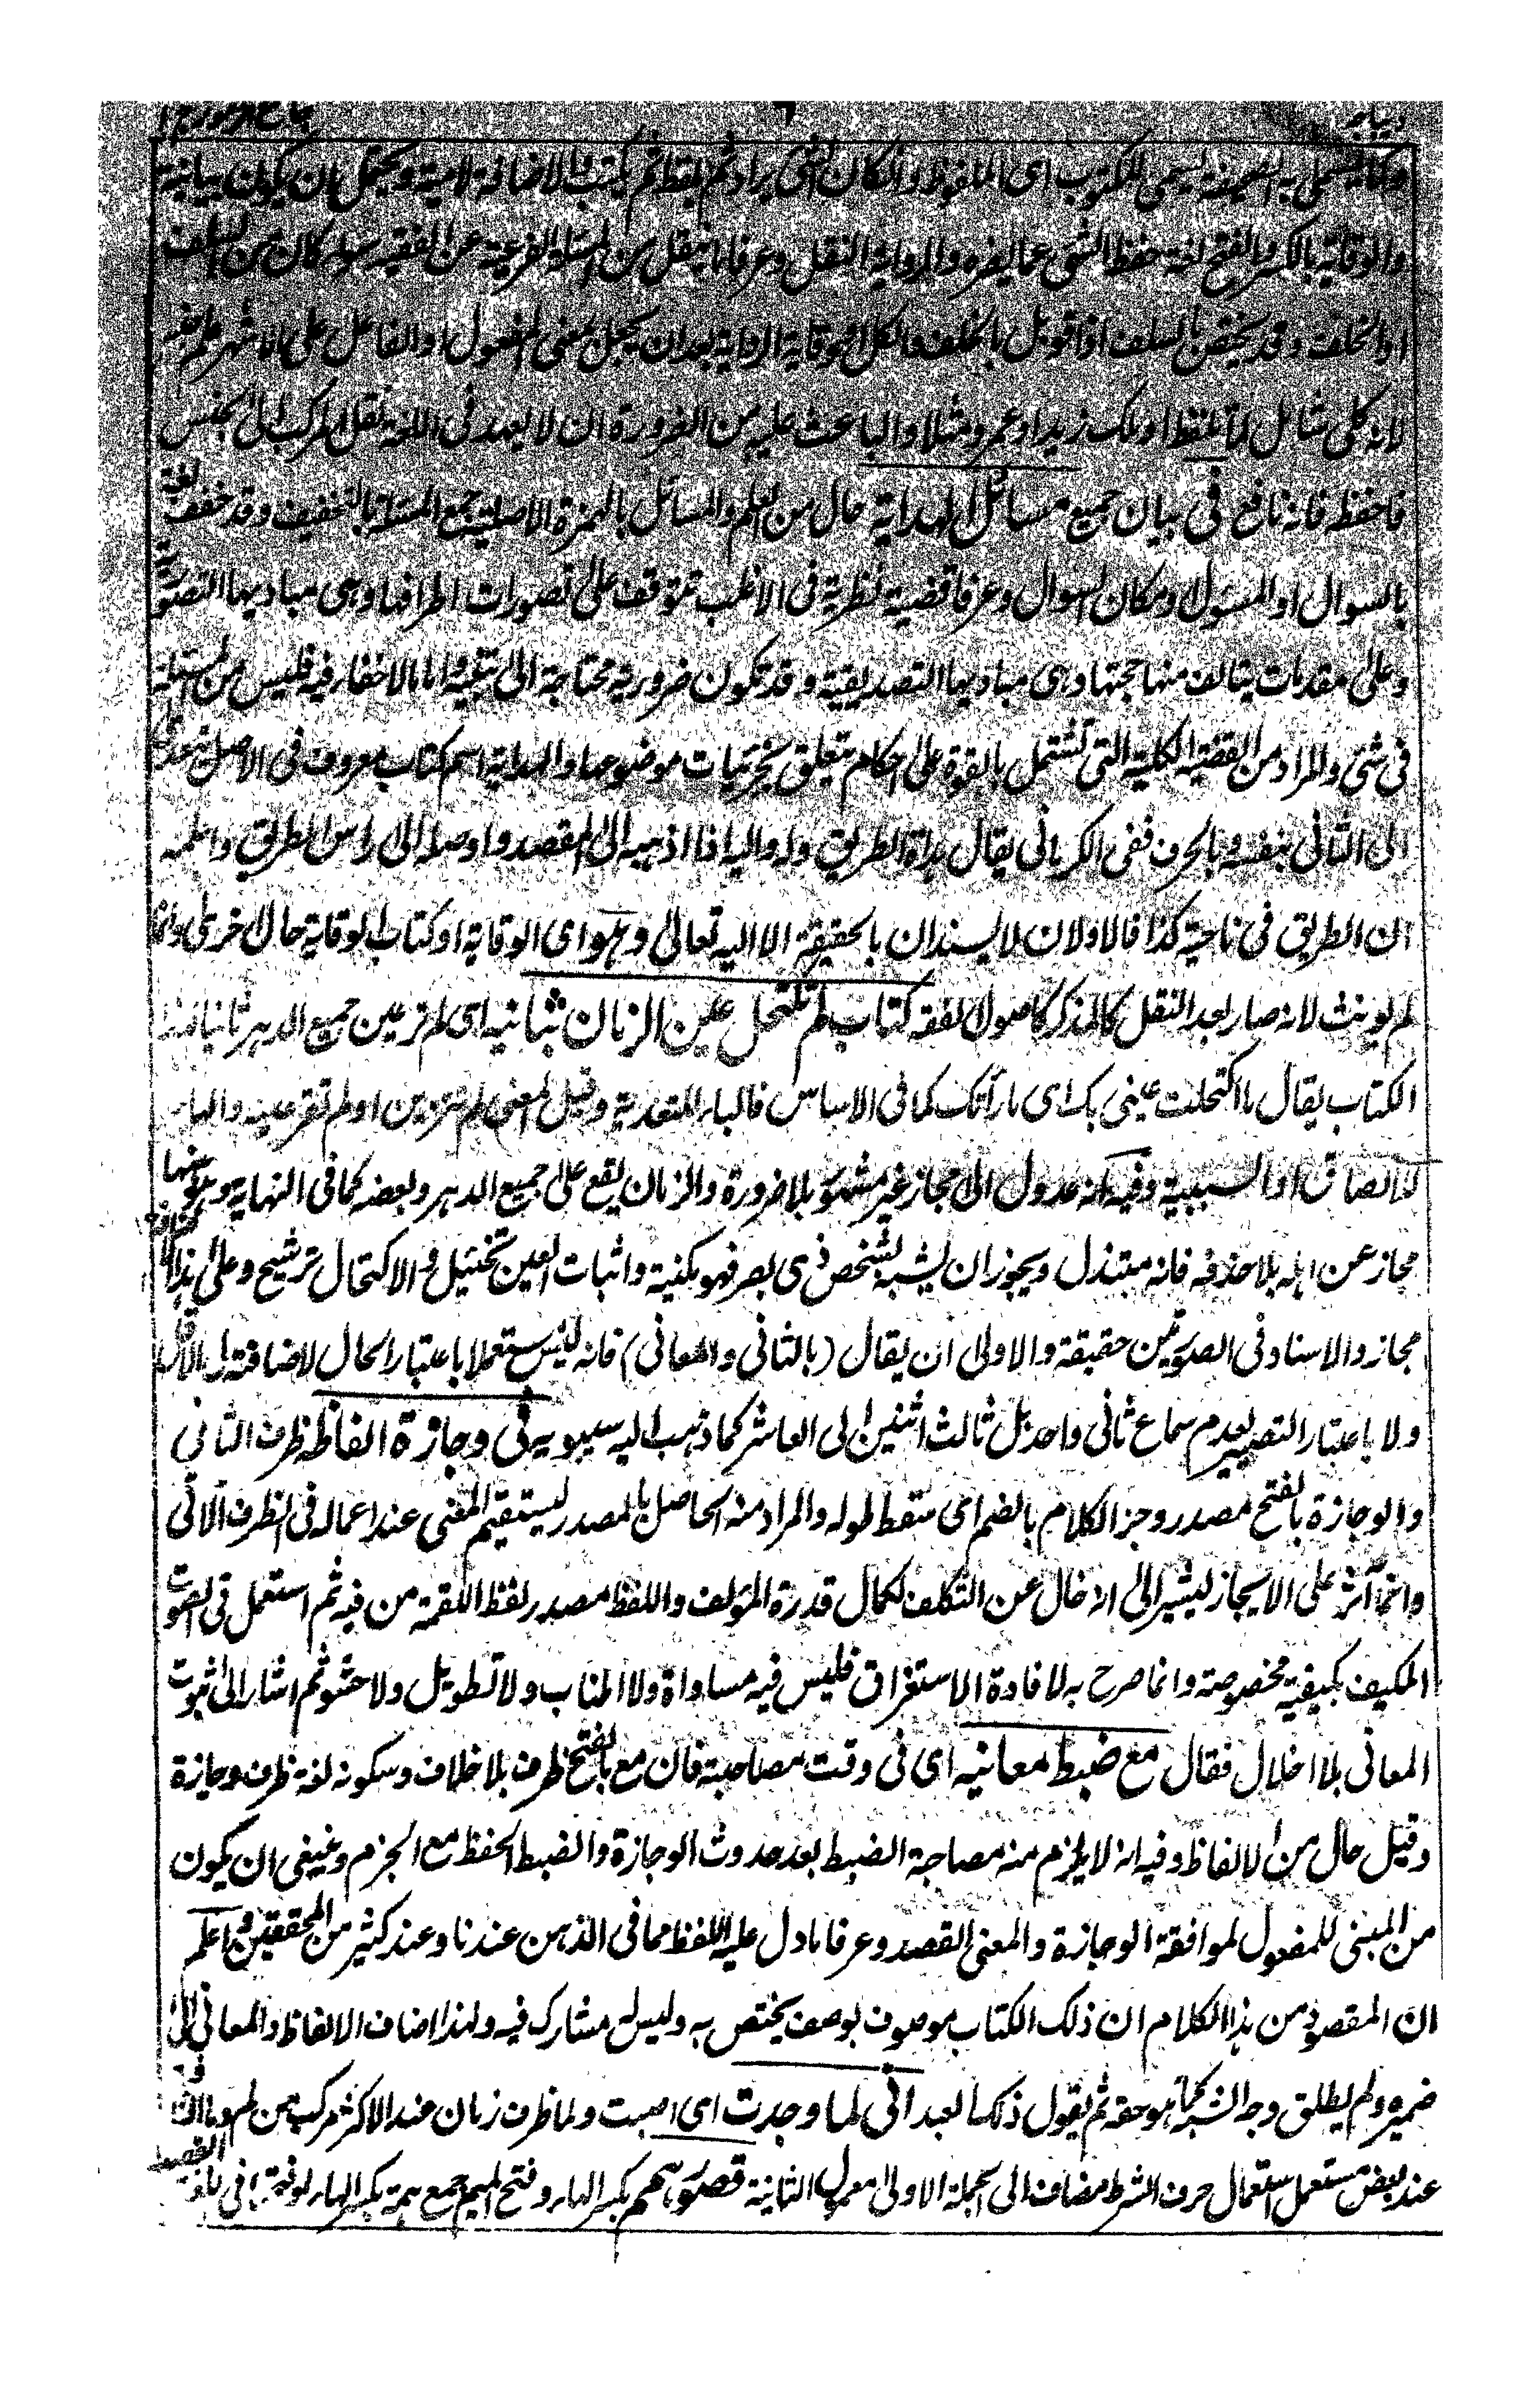 ديباجه ٦ جامع الرموز ج ١
وكما يسمى به الصحيفة يسمى المكتوب اى الملفوظ والكان الذى يراد ثم يلفظ ثم يكتب الاضافة لامية ويحتمل ان يكون بيانية
والوقاية بالكسر والفتح لغة حفظ الشئ عما يضره والرواية النقل وعرفا ما ينقل من المسئلة الفرعية عن الفقيه سواء كان من السلف
او الخلف وقد يختص بالسلف اذا قوبل بالخلف والكل وقاية الرواية بعد ان يجعل بمعنى المفعول او الفاعل على الاشهر علم
لانه كلى شامل لما تلفظ اولك زيد او عمرو مثلا والباعث عليه من الضرورة ان لا يعد فى اللغة نقل المركب الى الجنس
فاحفظه فانه نافع فى بيان جميع مسائل الهداية حال من العلم والمسائل بالهمزة الاصلية جمع المسئلة بالتخفيف وقد خفف لغة
بالسوال او المسئول او مكان السوال وعرفا قضية نظرية فى الاغلب تتوقف على تصورات اطرافها وهى مباديها التصورية
وعلى مقدمات يتالف منها حجتها وهى مباديها التصديقية وقد تكون ضرورية محتاجة الى تنبيه اما ما لا خفاء فيه فليس من المسئلة
فى شئ والمراد من القضية الكلية التى تشتمل بالقوة على احكام تتعلق بجزئيات موضوعها والهداية اسم كتاب معروف فى الاصل يتعدى
الى الثانى بنفسه وبالحرف ففى الكرمانى يقال هداه الطريق وله واليه اذا اذهبه الى المقصد واوصله الى راس الطريق واعلمه
ان الطريق فى ناحية كذا فالاولان لا يسندان بالحقيقة الا اليه تعالى وهو اى الوقاية او كتاب الوقاية حال اخرى وانما
لم يونث لانه صار بعد النقل كالمذكر كاصول الفقه كتاب لم تكتحل عين الزمان بثانيه اى لم تر عين جميع الدهر ثانيا لهذا
الكتاب يقال ما اكتحلت عينى بك اى ما رأتك كما فى الاساس فالباء للتعدية وقيل المعنى لم تتزين او لم تقر عينه والباء
للالصاق او السببية وفيه انه عدول الى مجاز غير مشهور بلا ضرورة والزمان يقع على جميع الدهر وبعضه كما فى النهاية وهو ههنا
مجاز عن اهله بلا حذفه فانه مبتذل ويجوز ان يشبه بشخص ذى بصر فهو مكنية واثبات العين تخييل والاكتحال ترشيح وعلى هذا
مجاز والاسناد فى الصورتين حقيقة والاولى ان يقال (بالثانى والمعانى) فانه ليس مستعملا باعتبار الحال لاضافته الى الاقل
ولا باعتبار التصيير لعدم سماع ثانى واحد بل ثالث اثنين الى العاشر كما ذهب اليه سيبويه فى وجازة الفاظه ظرف الثانى
والوجازة بالفتح مصدر وجز الكلام بالضم اى سقط طوله والمراد منه الحاصل بالمصدر ليستقيم المعنى عند اعماله فى الظرف الآتى
وانما آثر على الايجاز ليشير الى الاخال عن التكلف لكمال قدرة المؤلف واللفظ مصدر لفظ اللقمة من فيه ثم استعمل فى الصوت
المكيف بكيفية مخصوصة وانما صرح به لافادة الاستغراق فليس فيه مساواة ولا اطناب ولا تطويل ولا حشو ثم اشار الى ثبوت
المعانى بلا اخلال فقال مع ضبط معانيه اى فى وقت مصاحبة فان مع بالفتح ظرف بلا خلاف وسكونه لغة ظرف وجازة
وقيل حال من الالفاظ وفيه انه لا يلزم منه مصاحبة الضبط بعد حدوث الوجازة والضبط الحفظ مع الجزم وينبغى ان يكون
من المبنى للمفعول لموافقة الوجازة والمعنى القصد وعرفا ما دل عليه اللفظ مما فى الذهن عندنا وعند كثير من المحققين واعلم
ان المقصود من هذا الكلام ان ذلك الكتاب موصوف بوصف يختص به وليس له مشارك فيه ولهذا اضاف الالفاظ والمعانى الى
ضميره ولم يطلق وجه الشبه كما هو حقه ثم يقول ذلك العبد انى لما وجدت اى اصبت ولما ظرف زمان عند الاكثر مركب من لم وما
عند بعض مستعمل استعمال حرف الشرط مضاف الى الجملة الاولى معمول الثانية قصور همم بكسر الهاء وفتح الميم جمع همة بكسر الهاء لغة